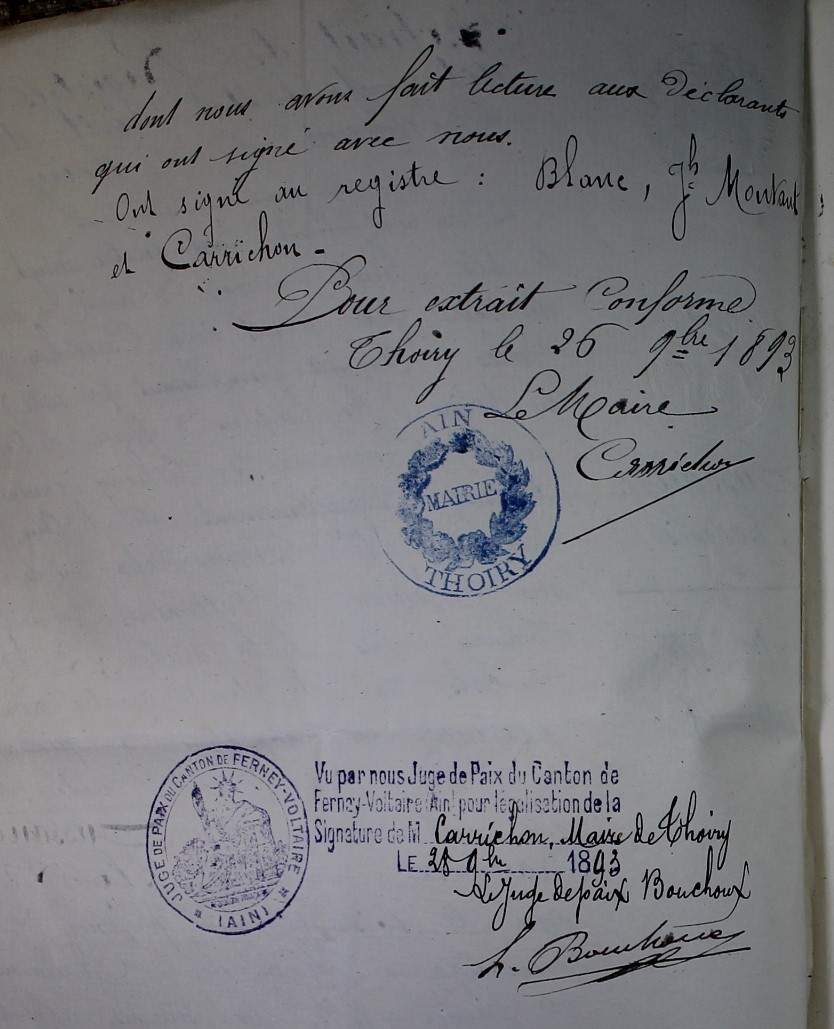 dont nous avons fait lecture aux déclarants
qui ont signé avec nous.
Ont signé au registre : Blanc, Jh Montant
et Carrichon.
Pour extrait Conforme
Thoiry le 26 9bre 1893
Le Maire
Carrichon
AIN
MAIRIE
THOIRY
JUGE DE PAIX DU CANTON DE FERNEY-VOLTAIRE
(AIN)
Vu par nous Juge de Paix du Canton de
Ferney-Voltaire (Ain) pour légalisation de la
Signature de M Carrichon, Maire de Thoiry
LE 28 9bre 1893
Le Juge de paix Bouchoux
Bouchoux